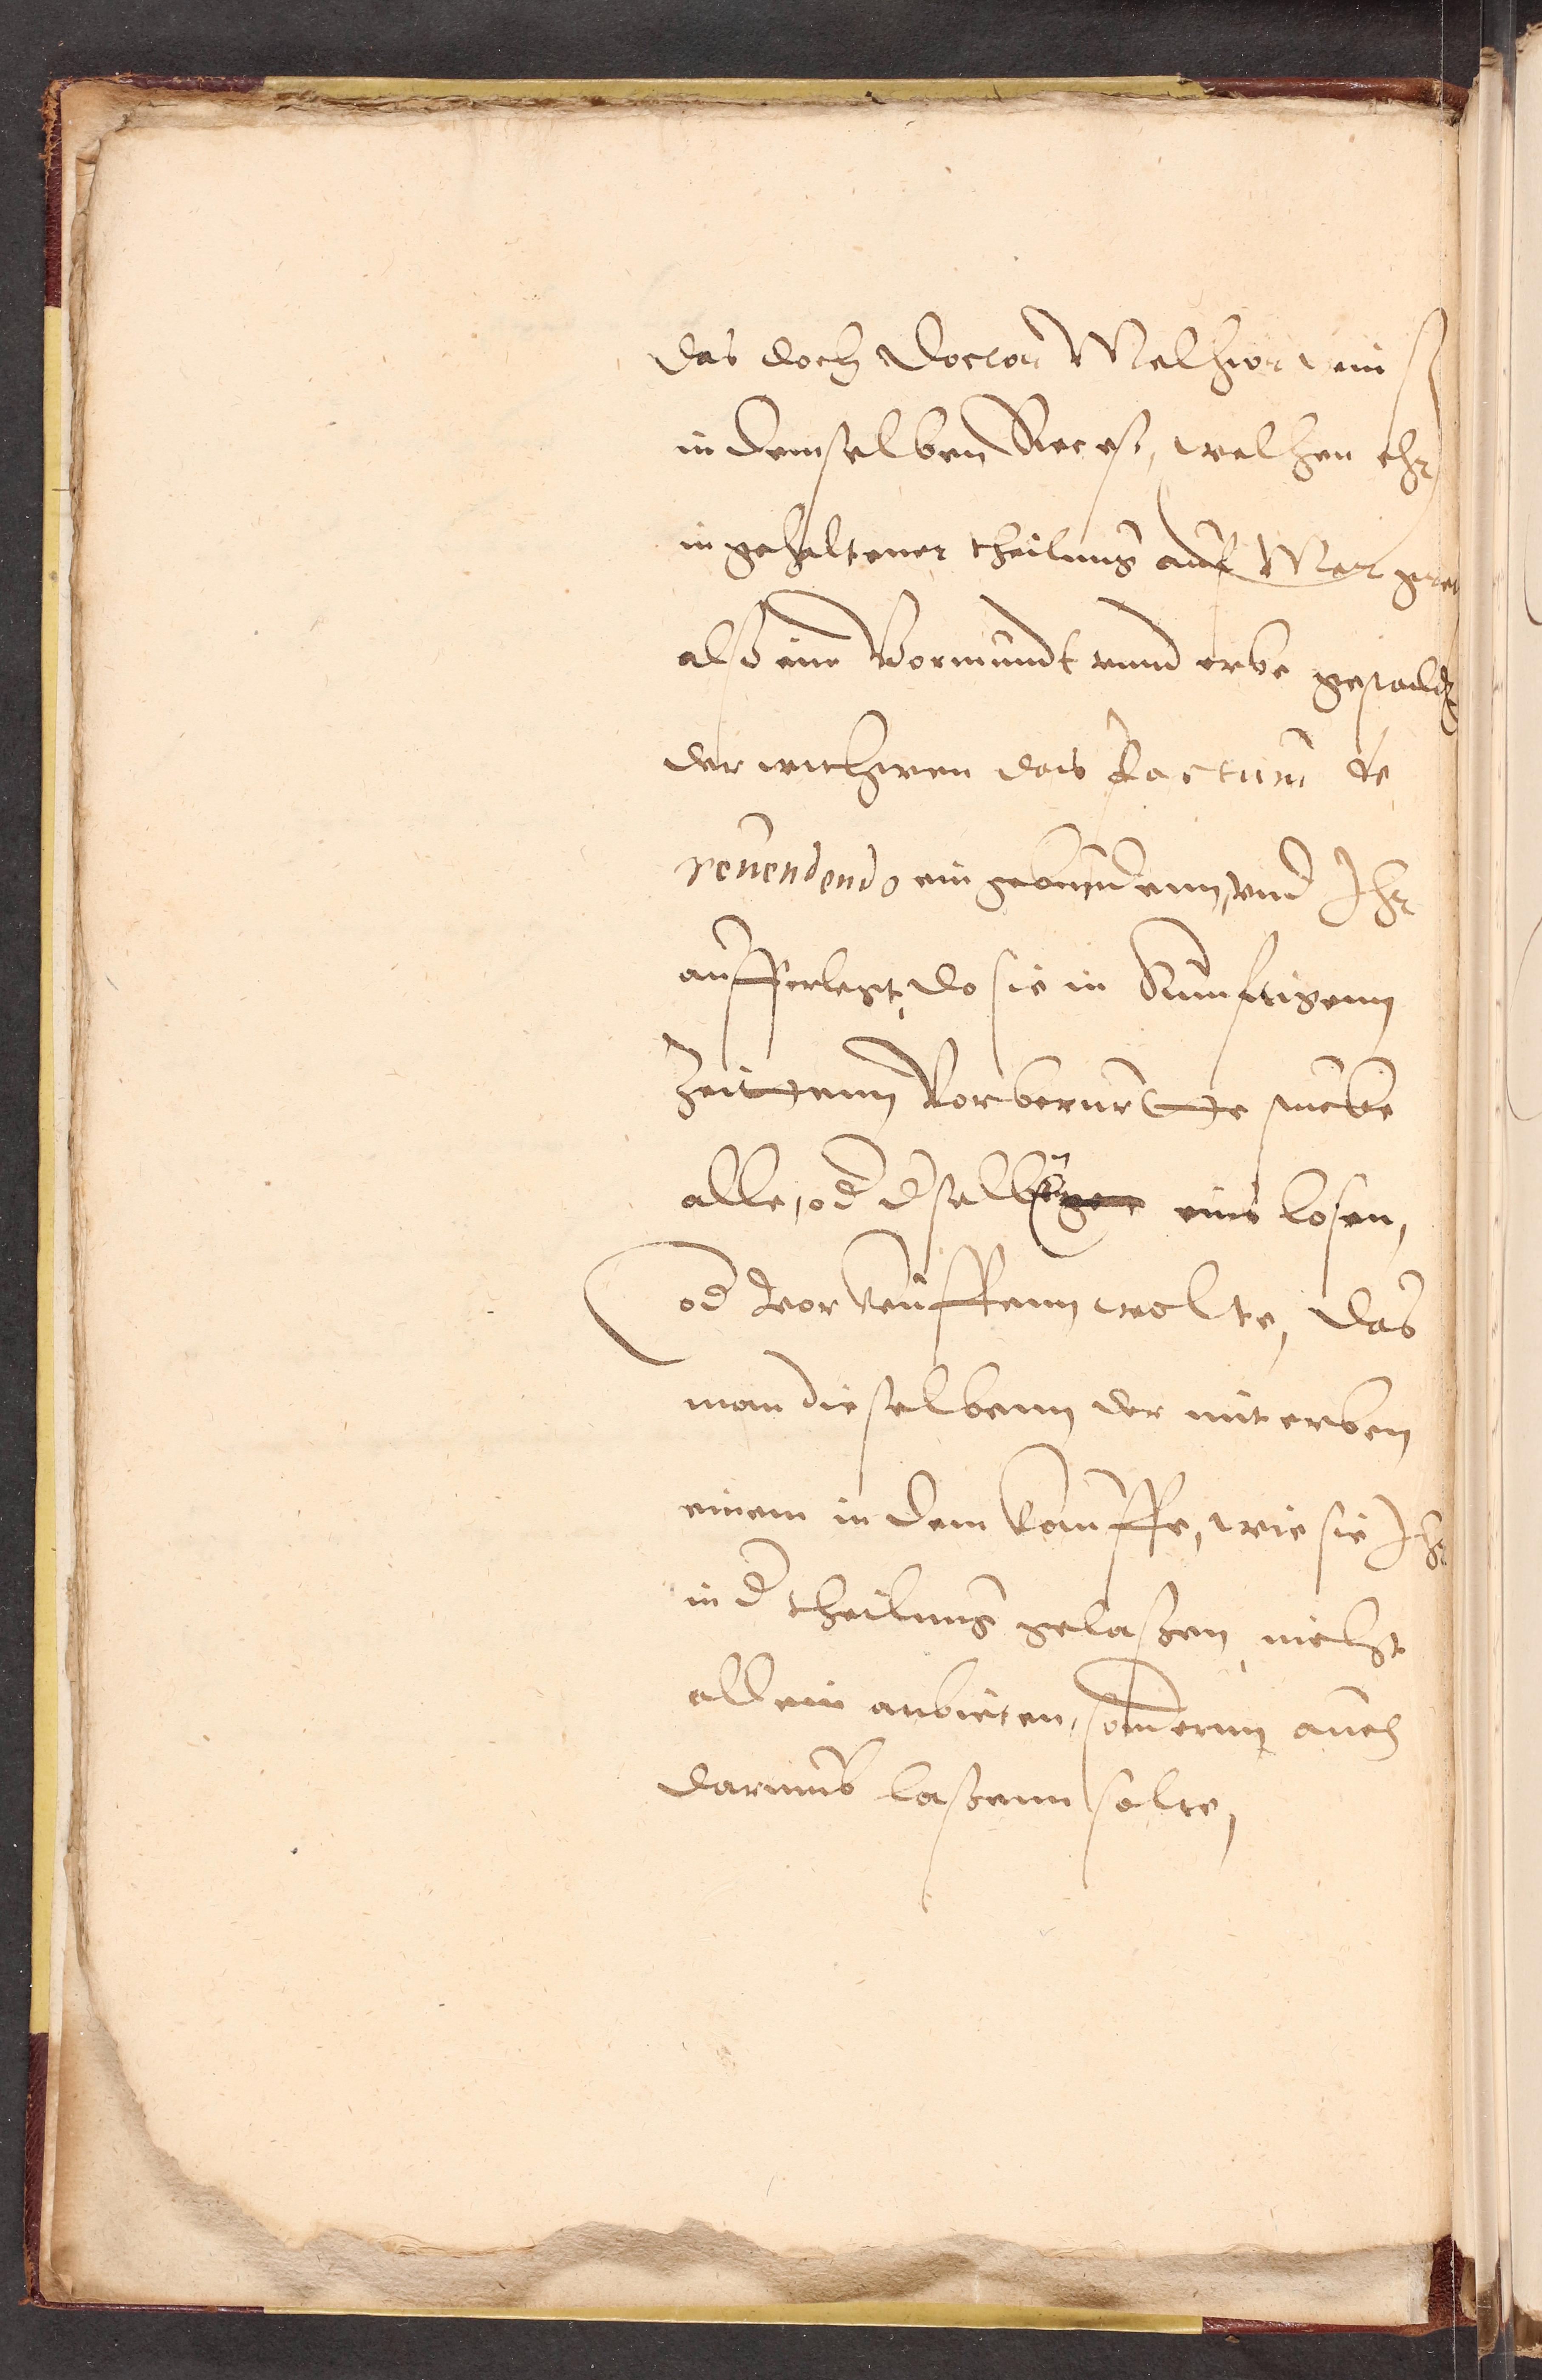 das doch Doctor Melhior von
in demselben Reces, welchen ehr
in gehaltener theilung auf Margret
als ein Vormundt vnnd erbe gestaldt,
der wittwen das Pactum de
revendendo eingebundenn, vnd Ihr
aufferlegt, do sie in Kunfftigenn
Zeittenn Vorberurtte stucke
alle, od d selbigen eins losen,
od Vorkeuffenn wolte, das
man dieselbenn der mit erben
einem in dem Kauffe, wie sie Ihr
in d theilung gelassen, nicht
allein anbieten, sondernn auch
darumb lassenn solte,